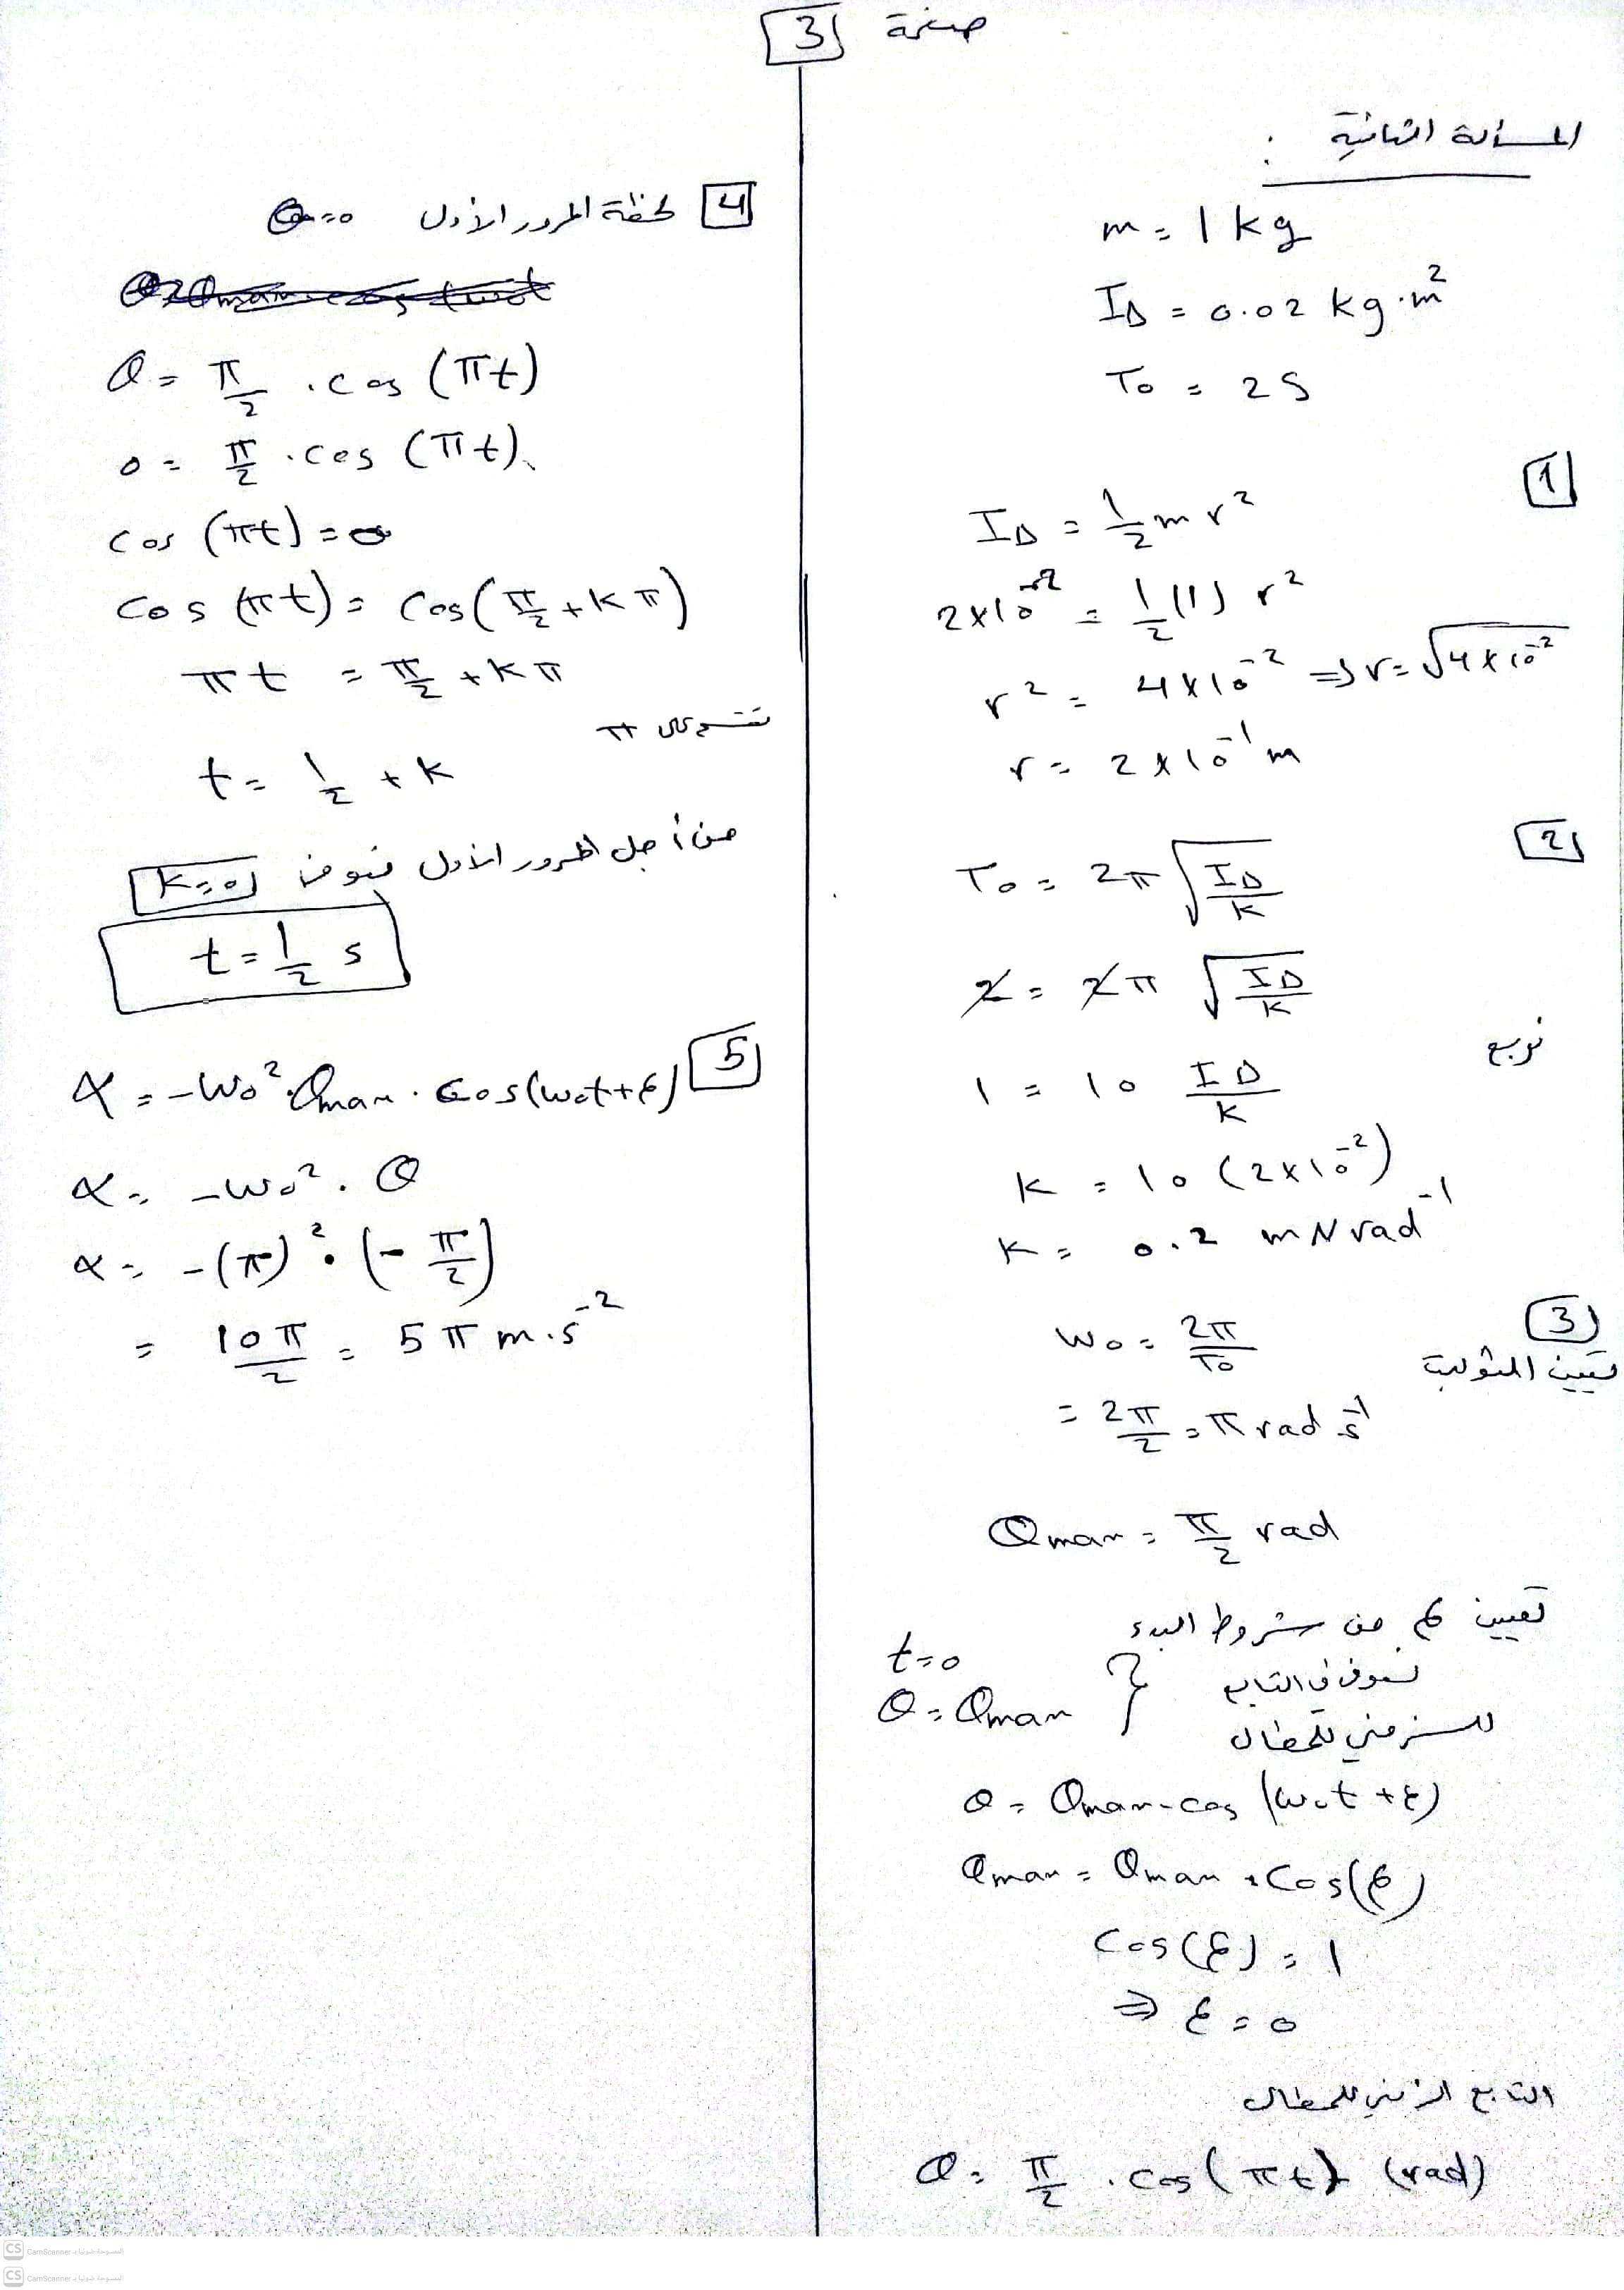 صفحة 3
المسألة الثانية :
m = 1 kg
I∆ = 0.02 kg.m²
T₀ = 2 S
1
I∆ = 1/2 m r²
2×10⁻² = 1/2 (1) r²
r² = 4×10⁻² ⇒ r = √4×10⁻²
r = 2×10⁻¹ m
2
T₀ = 2π √(I∆/K)
2 = 2π √(I∆/K)
نربع
1 = 10 I∆/K
K = 10 (2×10⁻²)
K = 0.2 m N rad⁻¹
3
تعيين الثوابت
ω₀ = 2π/T₀
= 2π/2 = π rad s⁻¹
θmax = π/2 rad
تعيين φ من شروط البدء
t=0
θ = θmax
نعوض في التابع
الزمني للمطال
θ = θmax . cos (ω₀t + φ)
θmax = θmax . cos (φ)
cos (φ) = 1
⇒ φ = 0
التابع الزمني للمطال
θ = π/2 . cos (πt) (rad)
4 لحظة المرور الأول θ=0
θ = π/2 . cos (πt)
0 = π/2 . cos (πt)
cos (πt) = 0
cos (πt) = cos (π/2 + Kπ)
πt = π/2 + Kπ
نقسم على π
t = 1/2 + K
من أجل المرور الأول نعوض K=0
t = 1/2 s
5
α = -ω₀² . θmax . cos (ω₀t + φ)
α = -ω₀² . θ
α = -(π)² . (-π/2)
= 10π/2 = 5π m.s⁻²
CS CamScanner الممسوحة ضوئيا بـ
CS CamScanner الممسوحة ضوئيا بـ